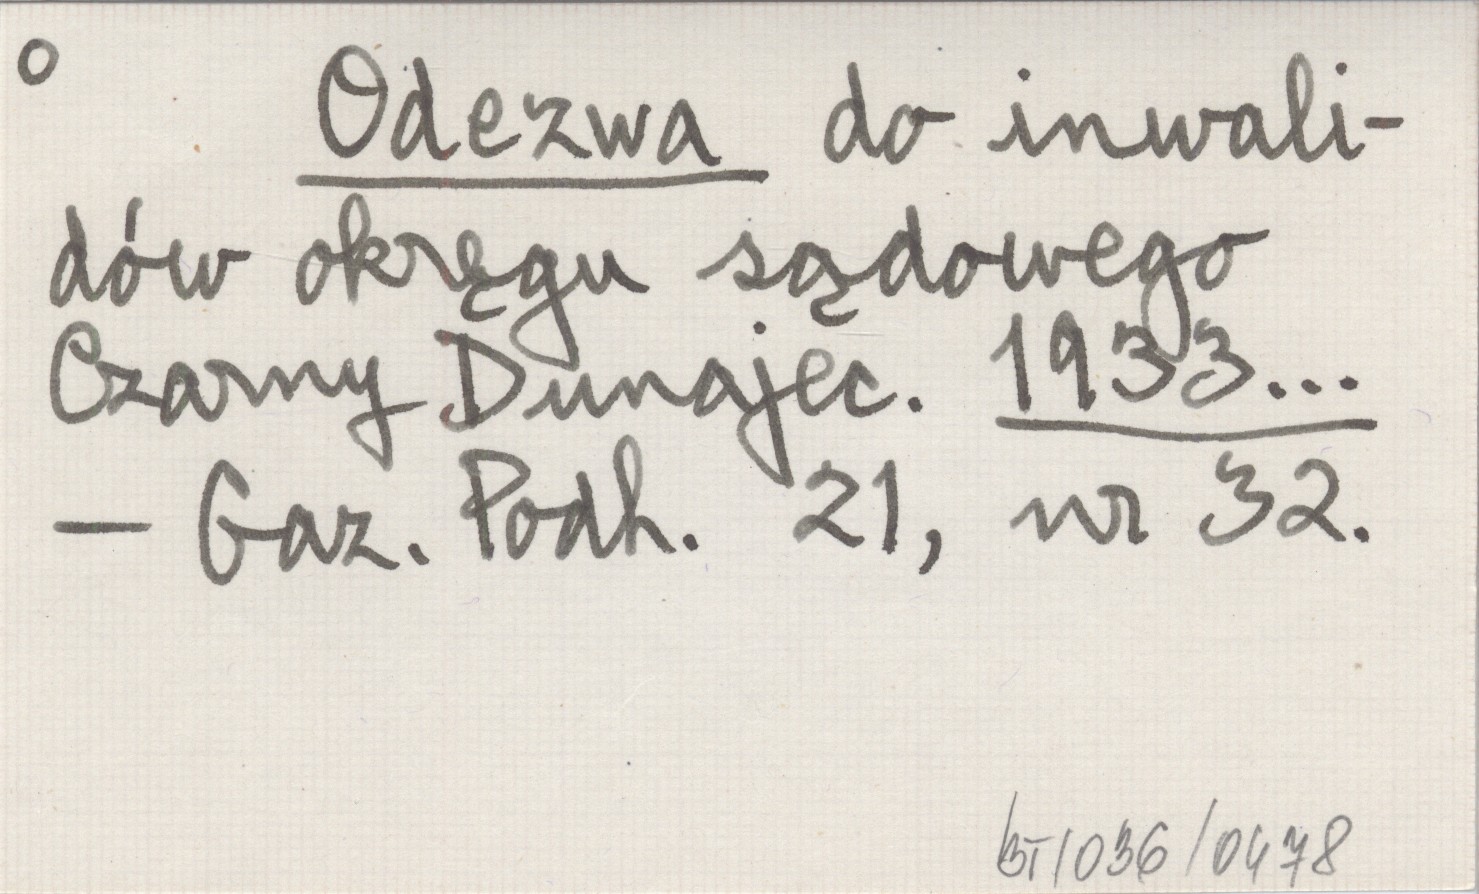 o Odezwa do inwali-
dów okręgu sądowego
Czarny Dunajec. 1933...
— Gaz. Podh. 21, nr 32.
BT/036/0478